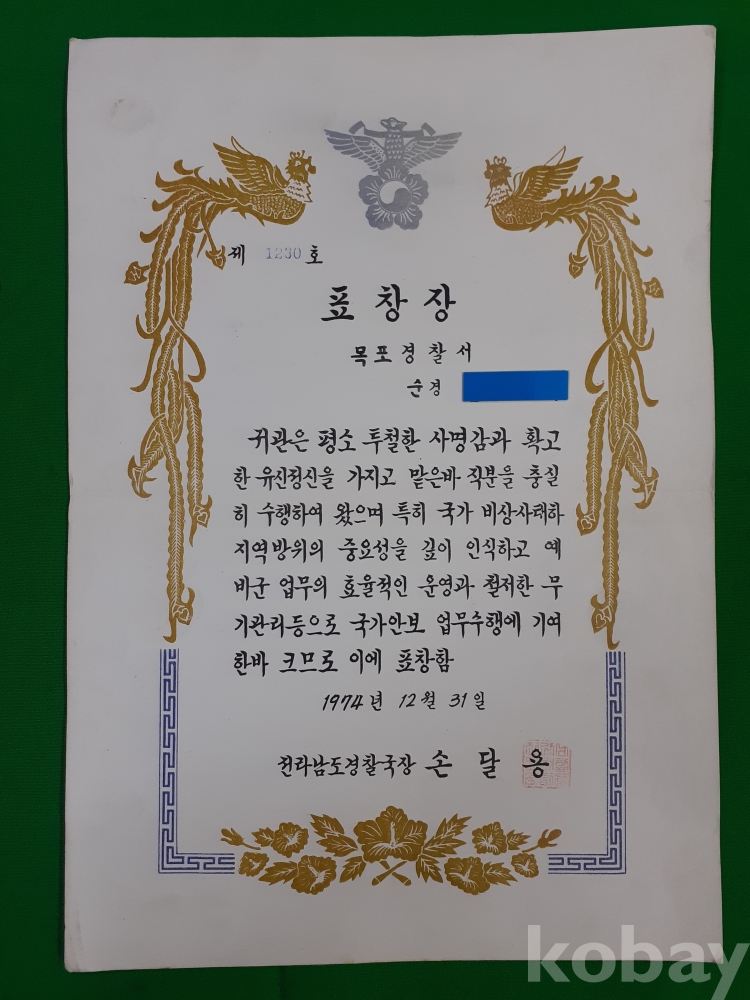 제 1230 호
표창장
목포경찰서
순경
귀관은 평소 투철한 사명감과 확고
한 유신정신을 가지고 맡은바 직분을 충실
히 수행하여 왔으며 특히 국가 비상사태하
지역방위의 중요성을 깊이 인식하고 예
비군 업무의 효율적인 운영과 철저한 무
기관리등으로 국가안보 업무수행에 기여
한바 크므로 이에 표창함
1974년 12월 31일
전라남도경찰국장 손달용
kobay